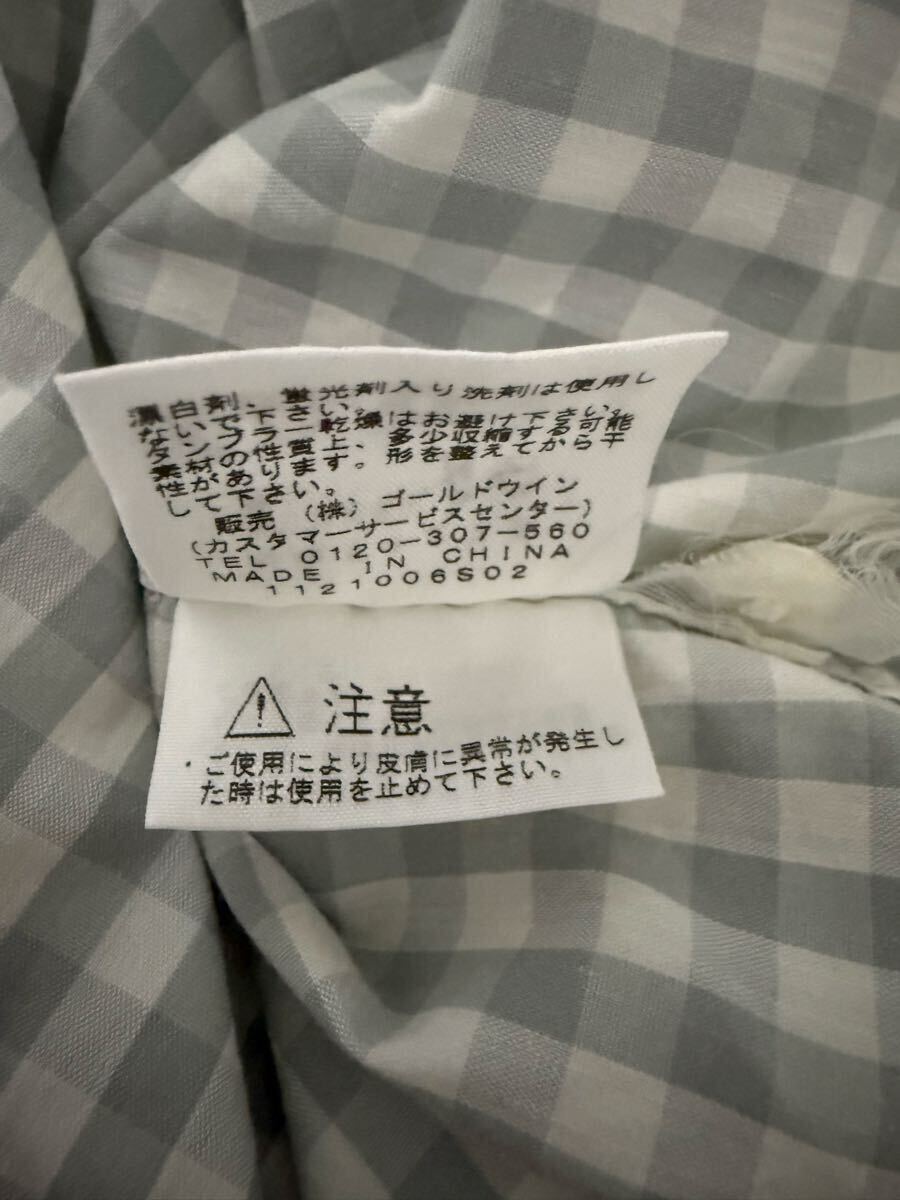 漂白剤、蛍光剤入り洗剤は使用し
ないで下さい。
タンブラー乾燥はお避け下さい。
素材の性質上、多少収縮する可能
性があります。形を整えてから干
して下さい。
販売 (株) ゴールドウイン
(カスタマーサービスセンター)
TEL 0120-307-560
MADE IN CHINA
1121006S02
注意
・ご使用により皮膚に異常が発生し
た時は使用を止めて下さい。